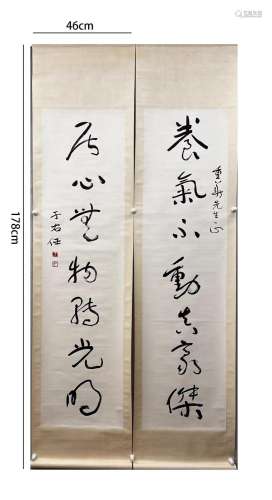 46cm
178cm
養氣不動真豪傑
先生正
居心無物轉光明
于右任